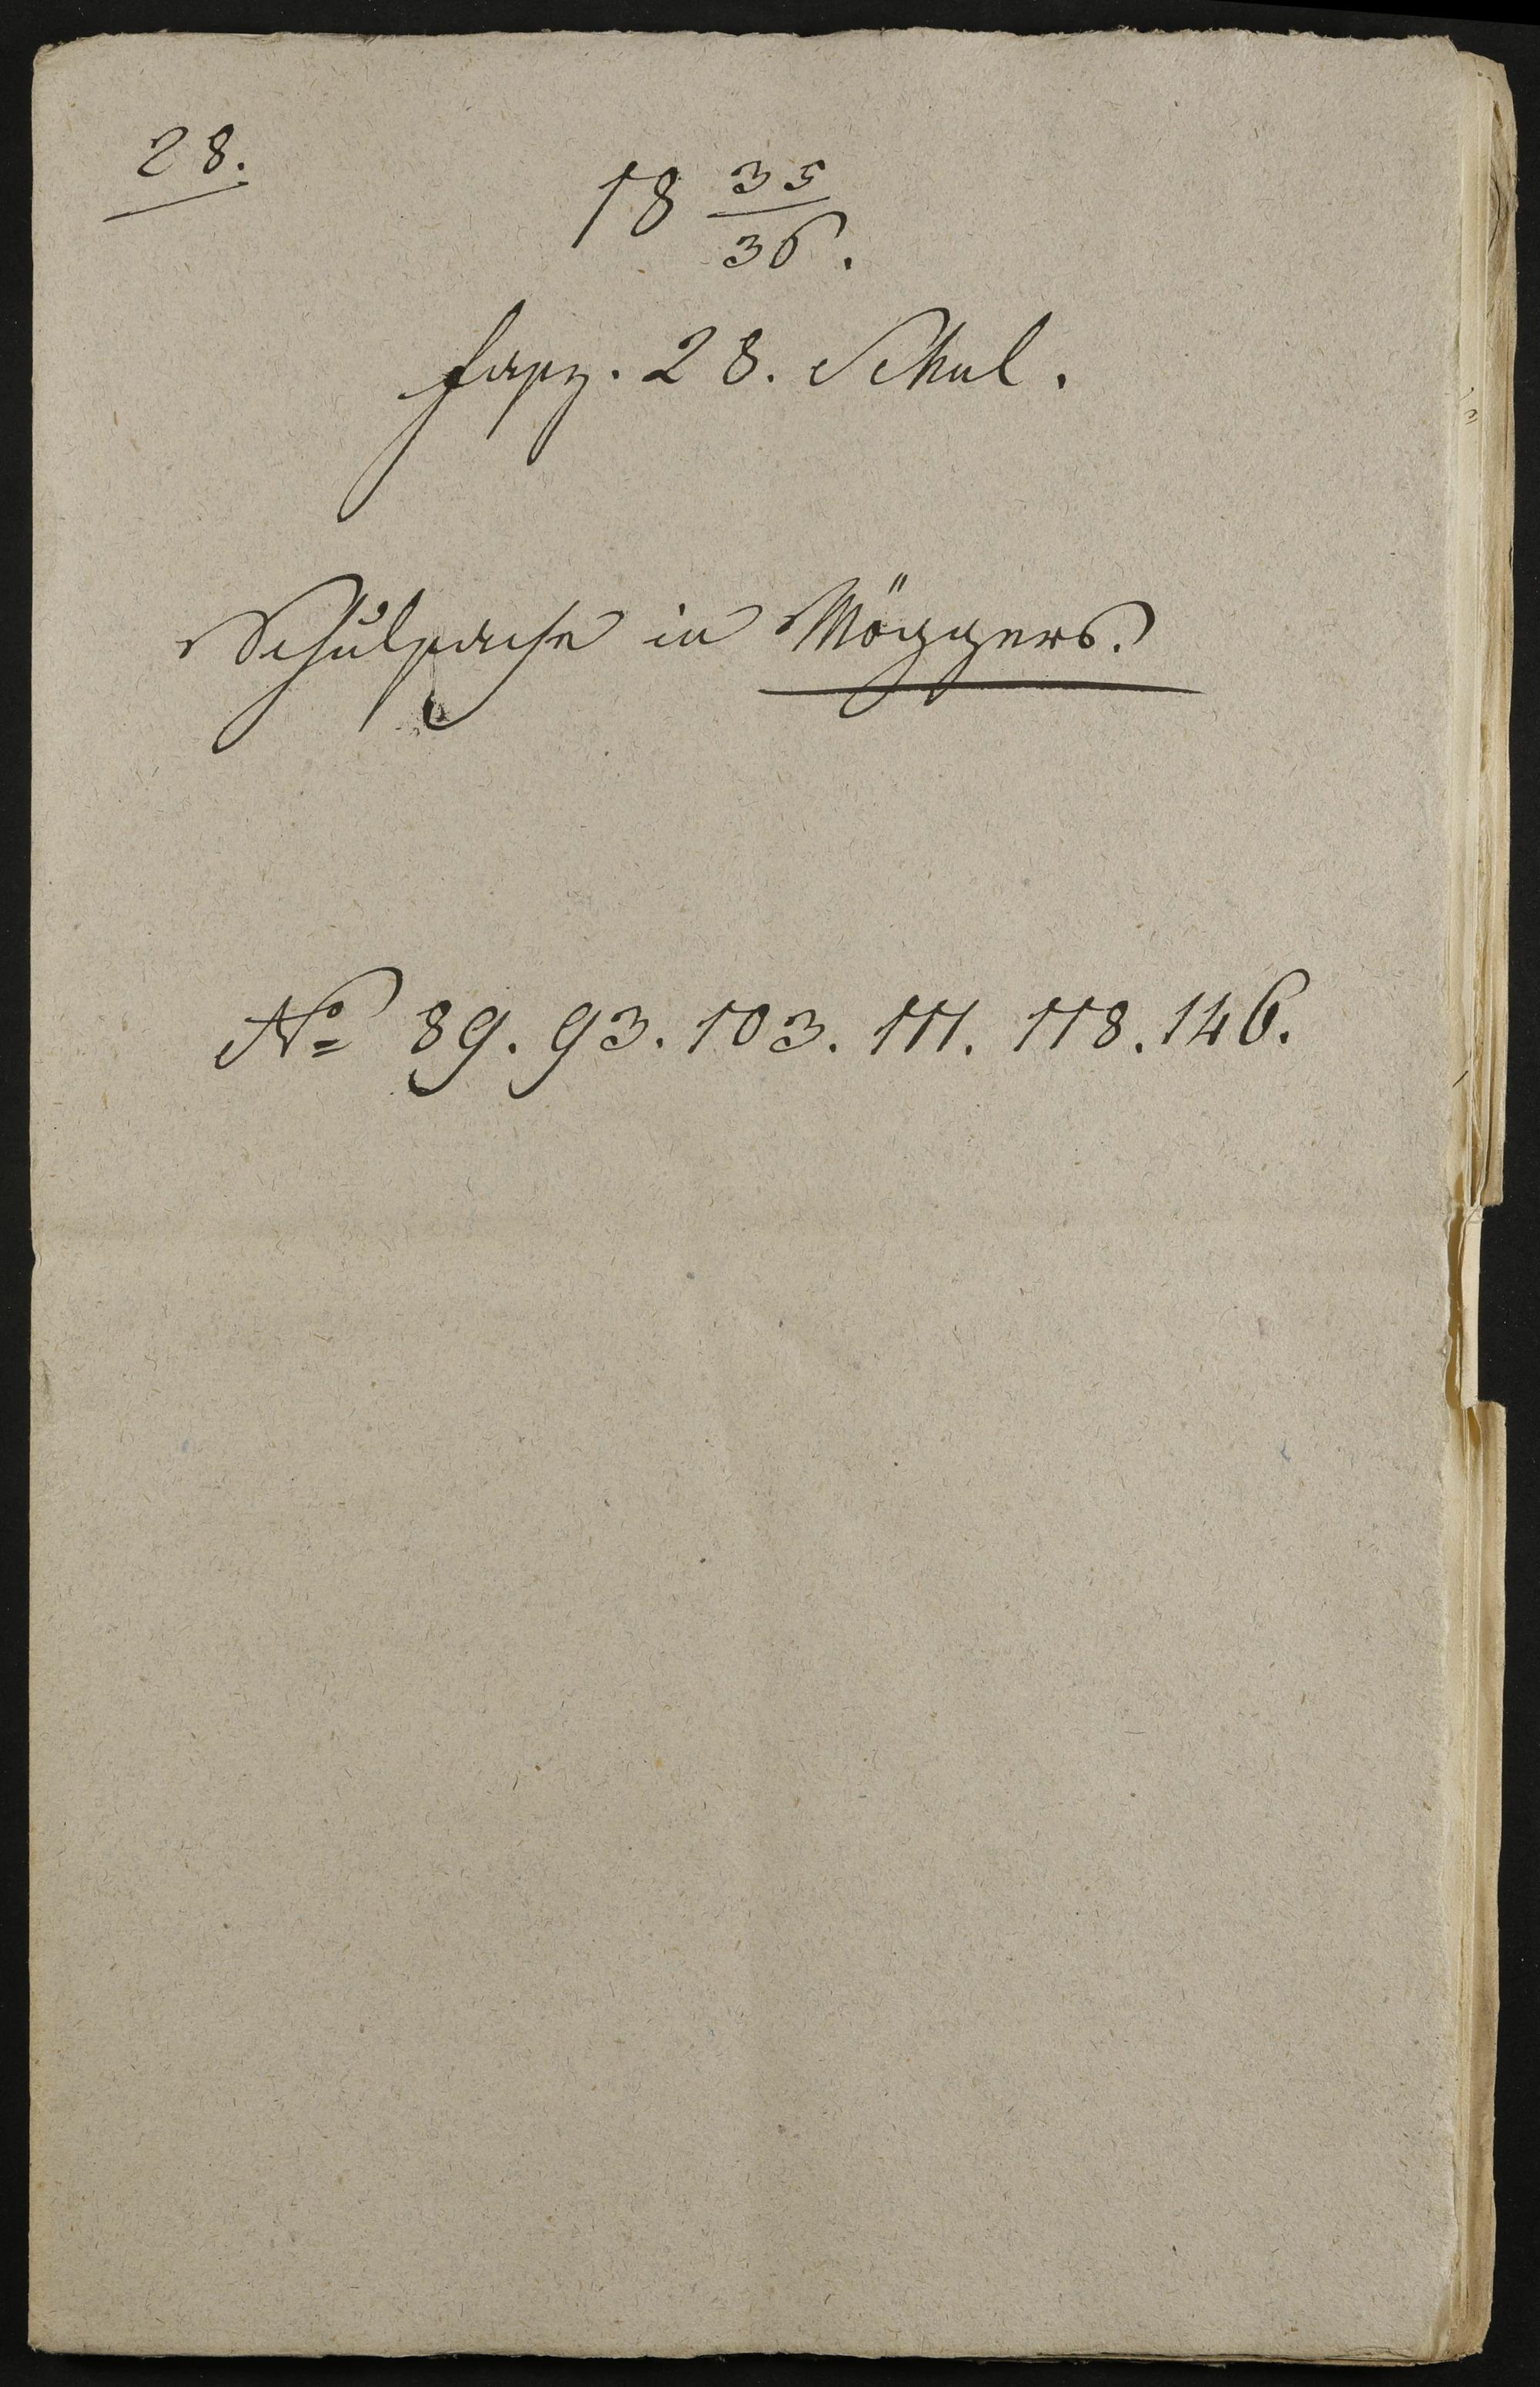 28.
18 35/36.
fasz. 28. Schul.
Schulsache in Möggers.
No 89. 93. 103. 111. 118. 146.